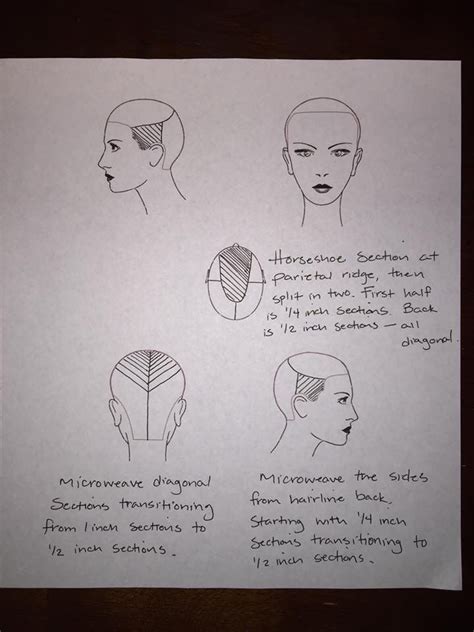 Horseshoe Section at
parietal ridge, then
split in two. First half
is 1/4 inch sections. Back
is 1/2 inch sections — all
diagonal.
Microweave diagonal
Sections transitioning
from 1 inch sections to
1/2 inch sections.
Microweave the sides
from hairline back.
Starting with 1/4 inch
Sections transitioning to
1/2 inch sections.